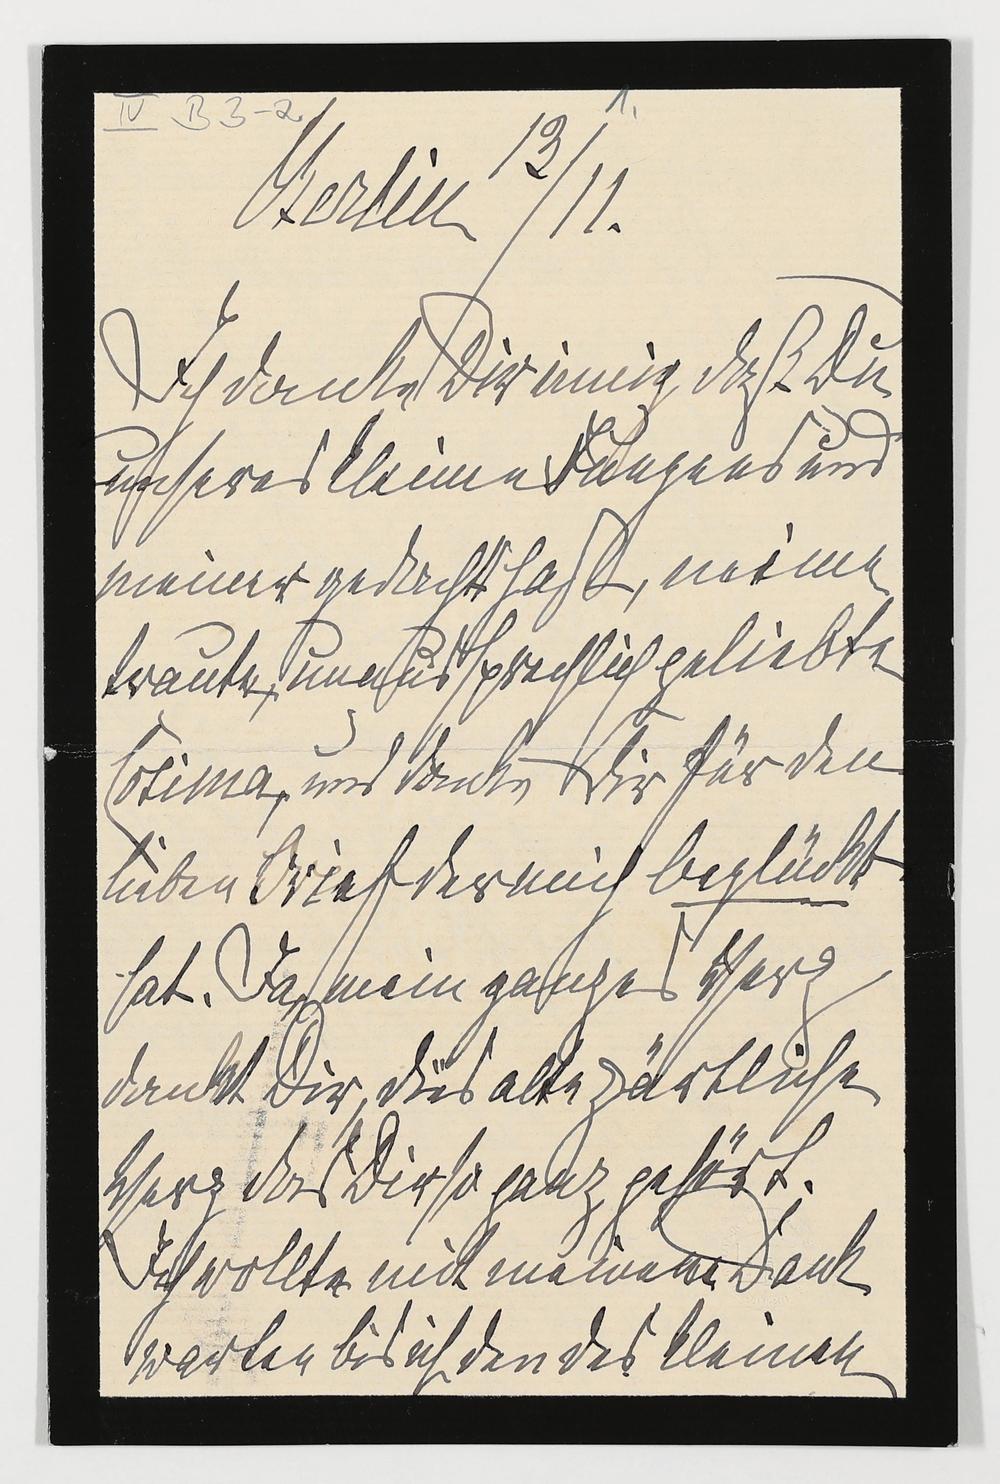 IV B 3-2
1.
Berlin 13/11.
Ich danke Dir innig, daß Du
unseres kleinen Jungens und
meiner gedacht hast, meine
traute, unaussprechlich geliebte
Cosima, und danke Dir für den
lieben Brief der mich beglückt
hat. Ja, mein ganzes Herz
dankt Dir, dies alte zärtliche
Herz das Dir so ganz gehört.
Ich wollte mit meinem Dank
warten bis ich den des kleinen